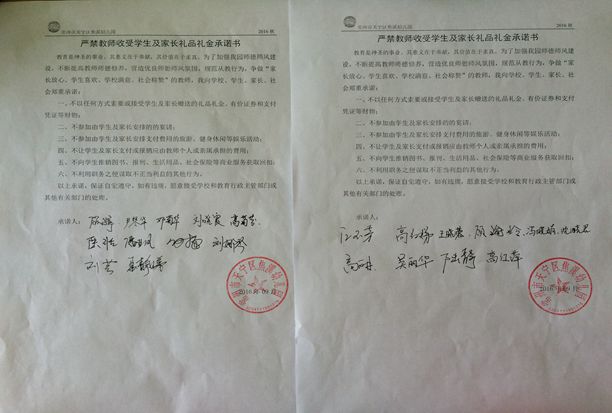 常州市天宁区焦溪幼儿园
2016 秋
严禁教师收受学生及家长礼品礼金承诺书
教育是神圣的事业，其意义在于奉献，其价值在于求真。为了加强我园师德师风建
设，不断提高教师师德修养，营造优良师德师风环境，规范从教行为，争做“家
长放心、学生喜欢、学校满意、社会称赞”的教师，我向学校、学生、家长、社
会郑重承诺：
一、不以任何方式索要或接受学生及家长赠送的礼品礼金、有价证券和支付
凭证等财物；
二、不参加由学生及家长安排的的宴请；
三、不参加由学生及家长安排支付费用的旅游、健身休闲等娱乐活动；
四、不让学生及家长支付或报销应由教师个人或亲属承担的费用；
五、不向学生推销图书、报刊、生活用品、社会保险等商业服务获取回扣；
六、不利用职务之便谋取不正当利益的其他行为。
以上承诺，保证自觉遵守，如有违规，愿意接受学校和教育行政主管部门或
其他有关部门的处理。
承诺人：
2016 年 09 月
常州市天宁区焦溪幼儿园
常州市天宁区焦溪幼儿园
2016 秋
严禁教师收受学生及家长礼品礼金承诺书
教育是神圣的事业，其意义在于奉献，其价值在于求真。为了加强我园师德师风建
设，不断提高教师师德修养，营造优良师德师风环境，规范从教行为，争做“家
长放心、学生喜欢、学校满意、社会称赞”的教师，我向学校、学生、家长、社
会郑重承诺：
一、不以任何方式索要或接受学生及家长赠送的礼品礼金、有价证券和支付
凭证等财物；
二、不参加由学生及家长安排的的宴请；
三、不参加由学生及家长安排支付费用的旅游、健身休闲等娱乐活动；
四、不让学生及家长支付或报销应由教师个人或亲属承担的费用；
五、不向学生推销图书、报刊、生活用品、社会保险等商业服务获取回扣；
六、不利用职务之便谋取不正当利益的其他行为。
以上承诺，保证自觉遵守，如有违规，愿意接受学校和教育行政主管部门或
其他有关部门的处理。
承诺人：
吴丽华 高红萍
2016 年 09 月
常州市天宁区焦溪幼儿园